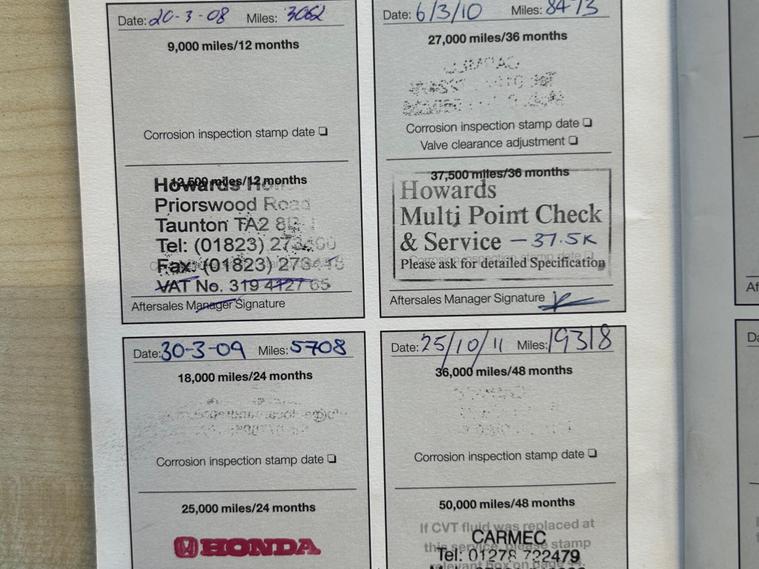 Date: 20-3-08 Miles: 3062
9,000 miles/12 months
Corrosion inspection stamp date
12,500 miles/12 months
Howards Honda
Priorswood Road
Taunton TA2 8
Tel: (01823)
Fax: (01823)
VAT No. 319 4127 65
Aftersales Manager Signature
Date: 30-3-09 Miles: 5708
18,000 miles/24 months
Corrosion inspection stamp date
25,000 miles/24 months
HONDA
Date: 6/3/10 Miles: 8473
27,000 miles/36 months
Corrosion inspection stamp date
Valve clearance adjustment
37,500 miles/36 months
Howards
Multi Point Check
& Service - 37.5K
Please ask for detailed Specification
Aftersales Manager Signature
Date: 25/10/11 Miles: 19318
36,000 miles/48 months
Corrosion inspection stamp date
50,000 miles/48 months
If CVT fluid was replaced at
this service, please stamp
CARMEC
Tel: 01278 722479
relevant box on page